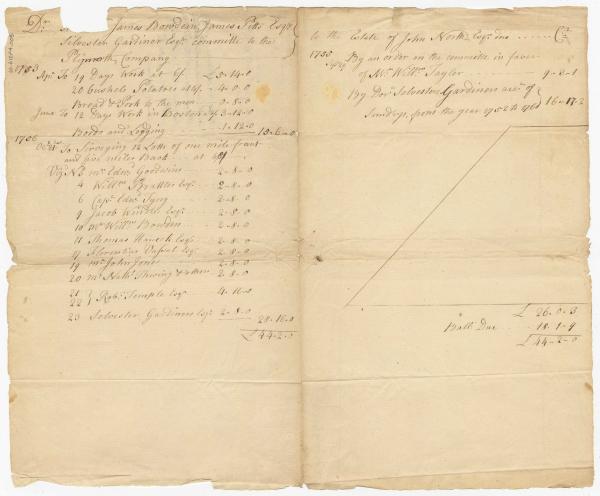 Dr. James Bowdoin, James Pitts Esqrs
Silvester Gardiner Esqr. Committe to the
Plymouth Company
1753
Apr. To 19 Days Work at 6/ £5-14-0
20 bushels Potatoes 4-0-0
Bread & Pork to the men 0-8-0
June To 12 Days Work in Boston 3-12-0
Bords and Logging 1-12-0 15-6-0
1756
To Surveying 12 Lotts of one mile front
and five miles Back at 48/
Viz No 2 Mr. Edwd Goodwin 2-8-0
4 Willm Brattle Esqr 2-8-0
6 Capt. Edwd Tyng 2-8-0
9 Jacob Wendell Esqr. 2-8-0
10 Mr. Willm Bowdoin 2-8-0
11 Thomas Hancock Esqr 2-8-0
17 Florentius Vassal Esqr 2-8-0
19 Mr. John Jones 2-8-0
20 Mr. Nathl Thwing & others 2-8-0
21
22 } Robt. Temple Esqr 4-16-0
23 Silvester Gardiner Esqr. 2-8-0 28-16-0
£44-2-0
to the Estate of John North Esqr. Cr.
1755
By an order on the committe in favor
of Mr. Willm Taylor 9-3-1
By Dor. Silvester Gardiners acct. of
Sundrys from the year 1752 to 1760 } 16-17-2
£ 26-0-3
Ball. Due 18-1-9
£44-2-0